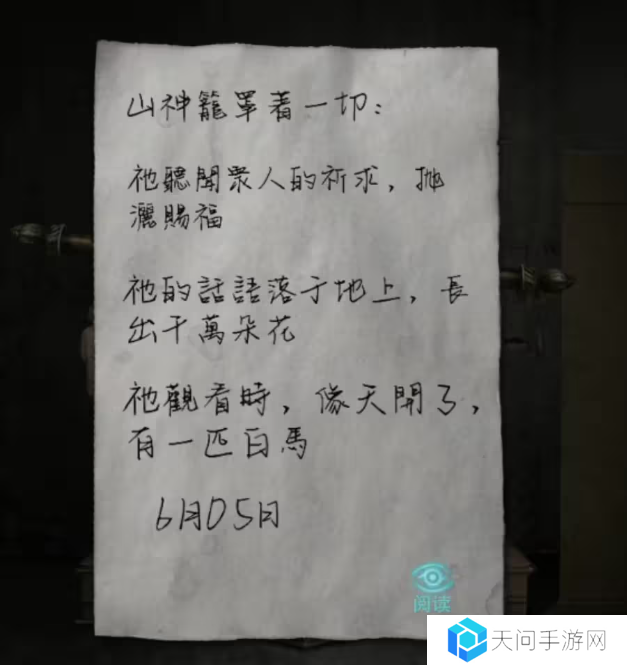 山神籠罩着一切：
祂聽聞衆人的祈求，拋
灑賜福
祂的話語落于地上，長
出千萬朵花
祂觀看時，像天開了，
有一匹白馬
6月05日
阅读
天问手游网